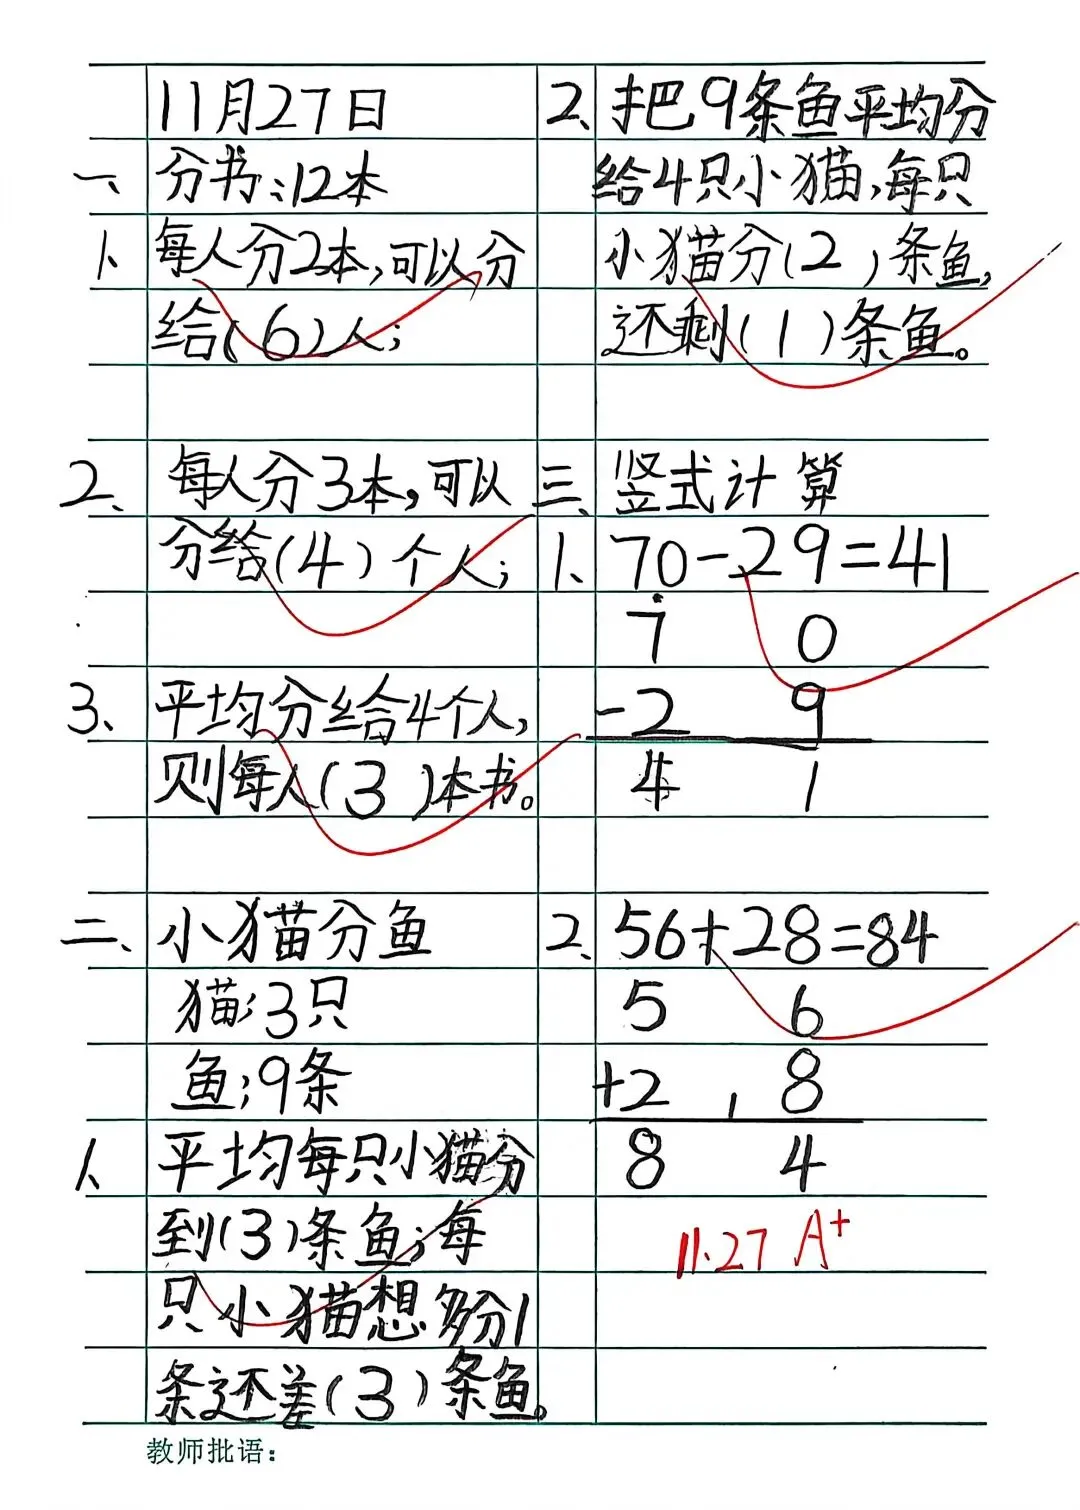 11月27日
一、分书:12本
1、每人分2本,可以分
给(6)人;
2、每人分3本,可以
分给(4)个人;
3、平均分给4个人,
则每人(3)本书。
二、小猫分鱼
猫:3只
鱼;9条
1、平均每只小猫分
到(3)条鱼;每
只小猫想多分1
条还差(3)条鱼。
2、把9条鱼平均分
给4只小猫,每只
小猫分(2)条鱼,
还剩(1)条鱼。
三、竖式计算
1、70-29=41
7 0
-2 9
4 1
2、56+28=84
5 6
+2 1 8
8 4
11.27 A+
教师批语: